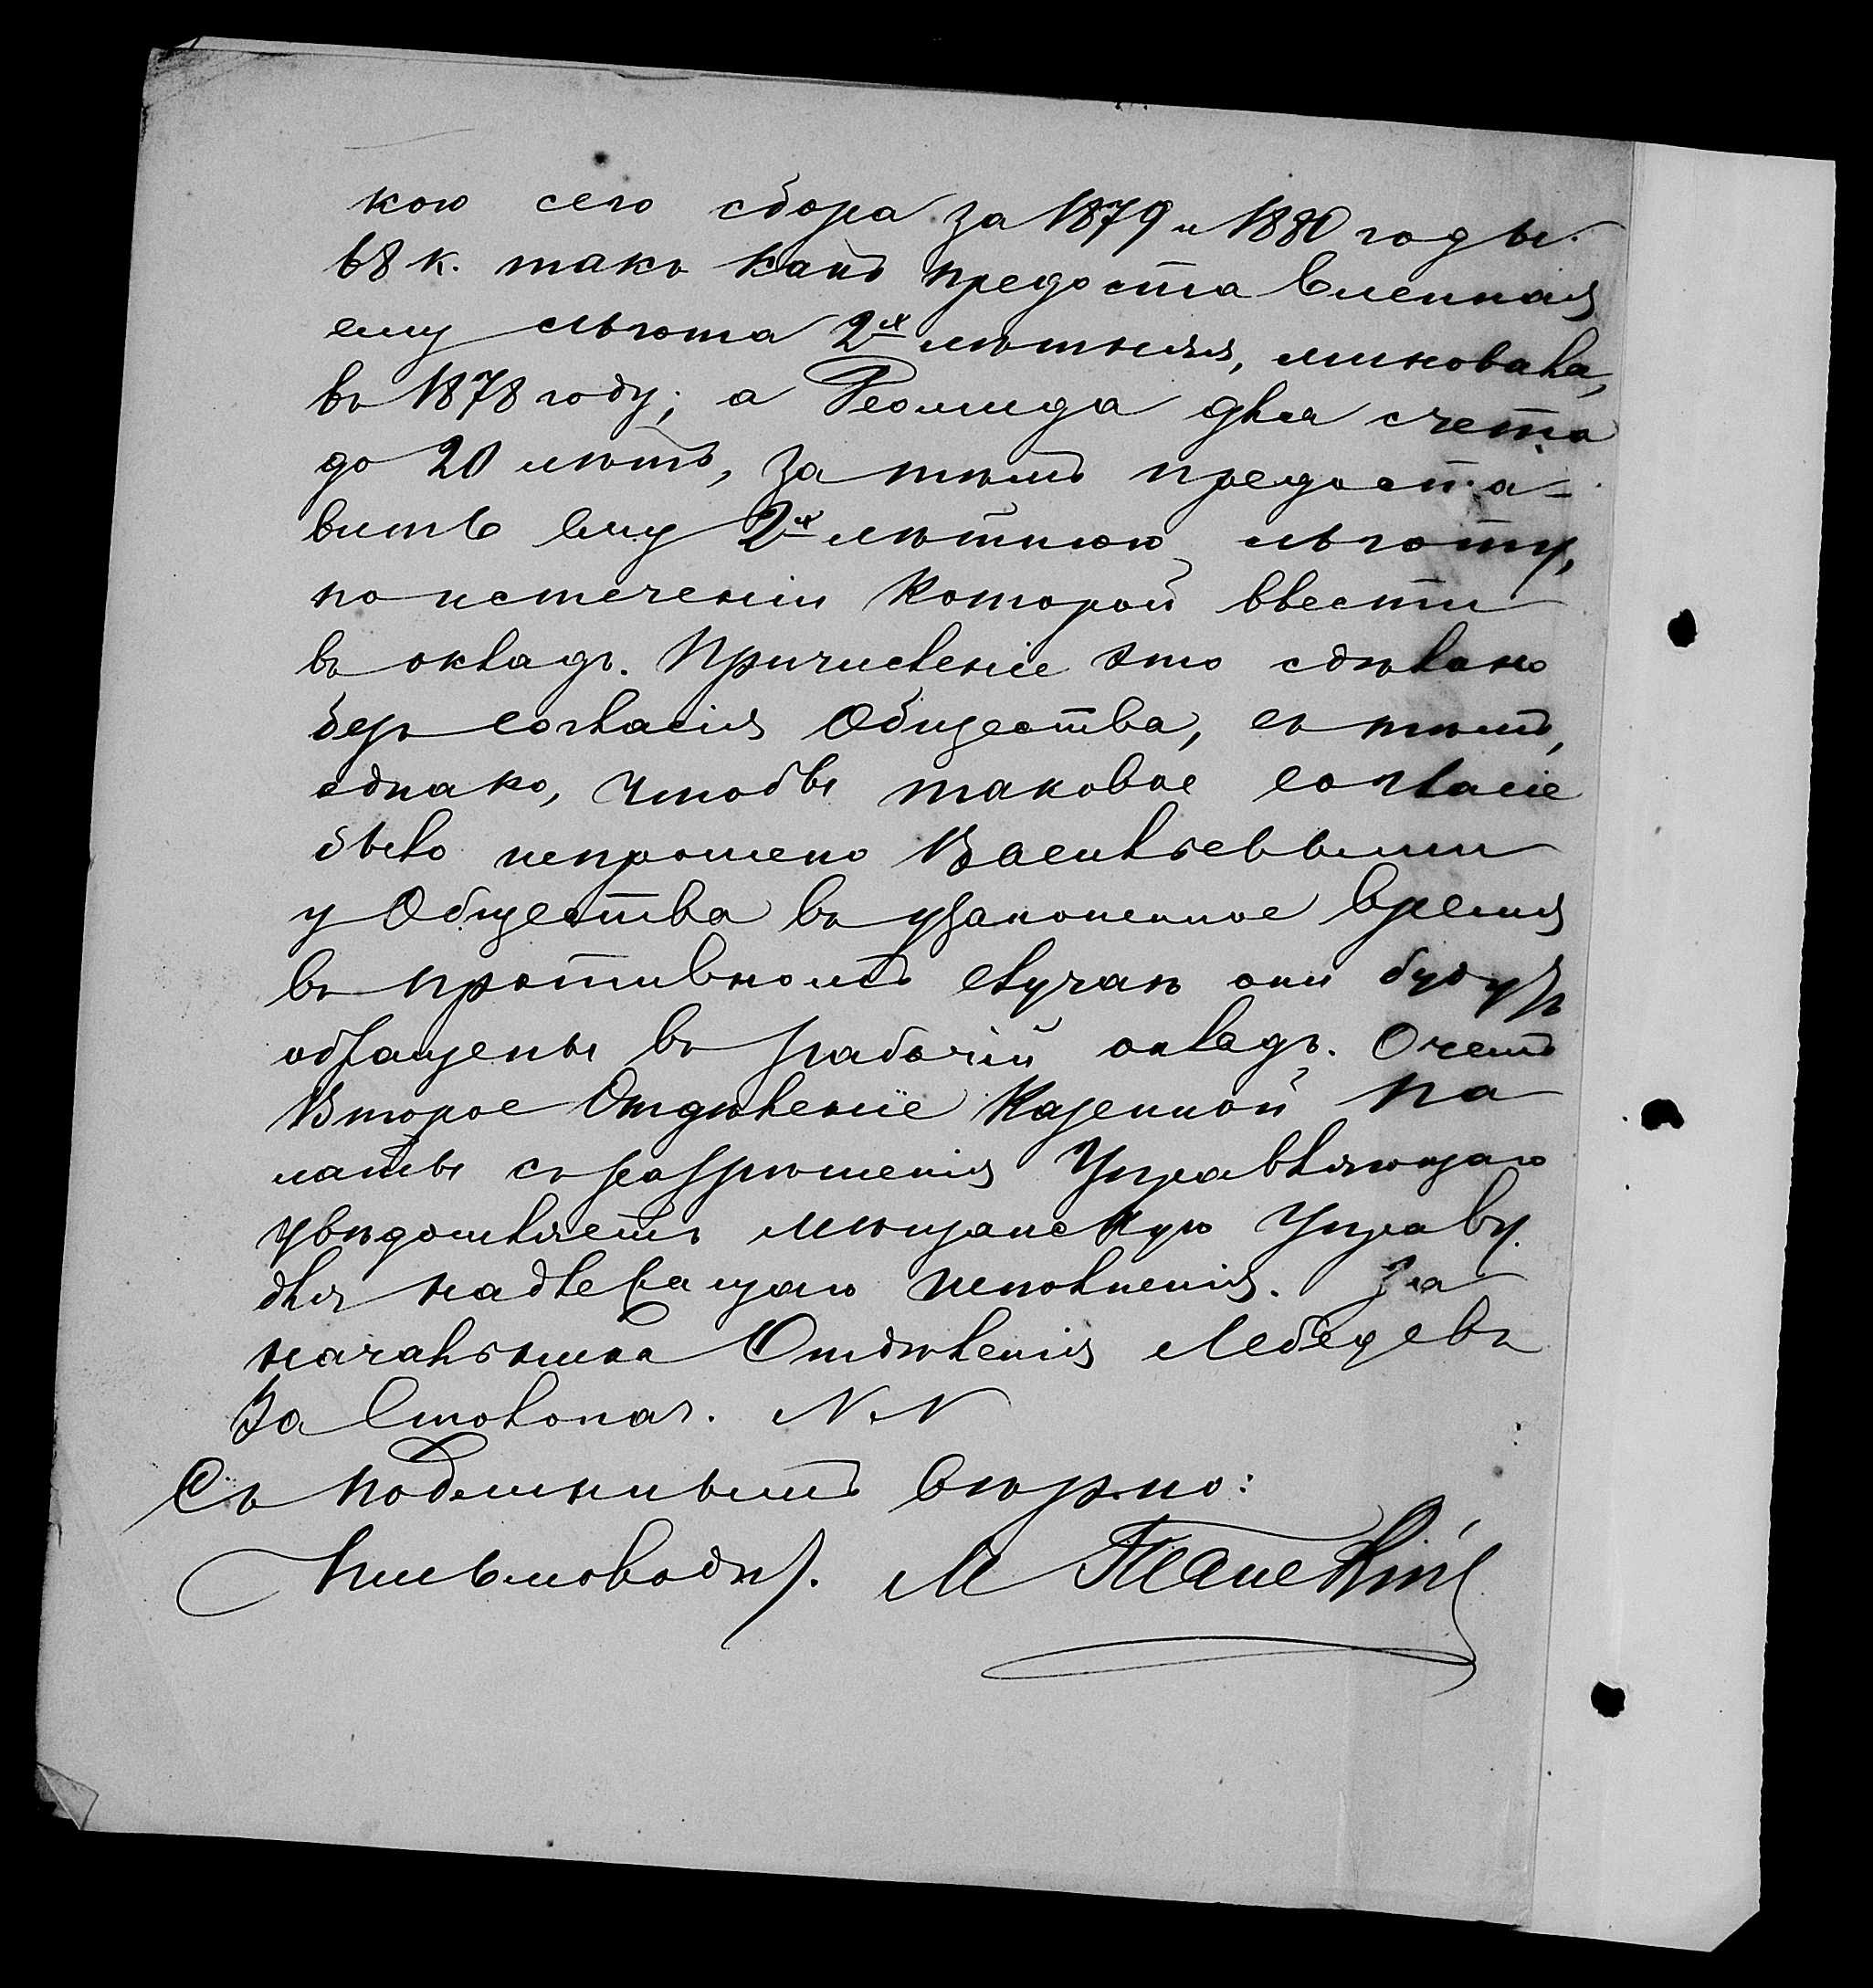 кою сего сбора за 1879 и 1880 годы.
68 к. такъ какъ предоставленная
ему льгота 2х лѣтняя, миновала,
въ 1878 году; а Леонида для счета
до 20 лѣтъ, за тѣмъ предоста-
вить ему 2х лѣтнюю льготу,
по истеченіи которой ввести
въ окладъ. Причисленіе это сдѣлано
безъ согласія Общества, съ тѣмъ,
однако, чтобы таковое согласіе
было испрошено Васильевыми
у Общества въ узаконенное время
въ противномъ случаѣ они будутъ
обращены въ рабочій окладъ. О чемъ
Второе Отдѣленіе Казенной Па
латы съ разрѣшенія Управляющаго
увѣдомляетъ Мѣщанскую Управу
для надлежащаго исполненія. За
начальника Отдѣленія Лебедевъ
За Столонач. N.N
Съ подлиннымъ вѣрно:
Письмоводит. М